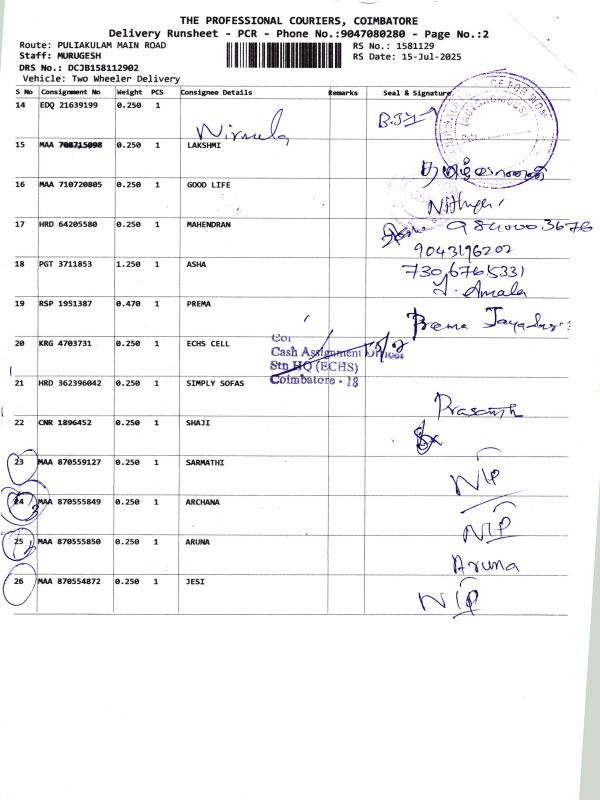 THE PROFESSIONAL COURIERS, COIMBATORE
Delivery Runsheet - PCR - Phone No.:9047080280 - Page No.:2
Route: PULIAKULAM MAIN ROAD RS No.: 1581129
Staff: MURUGESH RS Date: 15-Jul-2025
DRS No.: DCJB158112902
Vehicle: Two Wheeler Delivery
S No Consignment No Weight PCS Consignee Details Remarks Seal & Signature
14 EDQ 21639199 0.250 1
Nirmala
15 MAA 708715098 0.250 1 LAKSHMI
16 MAA 710720805 0.250 1 GOOD LIFE
Nithya
17 HRD 64205580 0.250 1 MAHENDRAN 9840003676
9043196202
18 PGT 3711853 1.250 1 ASHA 7306765331
J. Amala
19 RSP 1951387 0.470 1 PREMA
Prema
20 KRG 4703731 0.250 1 ECHS CELL
Cash Assignment Officer
Stn HQ (ECHS)
Coimbatore - 18
21 HRD 362396042 0.250 1 SIMPLY SOFAS
Prasanth
22 CNR 1896452 0.250 1 SHAJI
23 MAA 870559127 0.250 1 SARMATHI
NIP
24 MAA 870555849 0.250 1 ARCHANA
NIP
25 MAA 870555850 0.250 1 ARUNA
Aruna
26 MAA 870554872 0.250 1 JESI
NIP